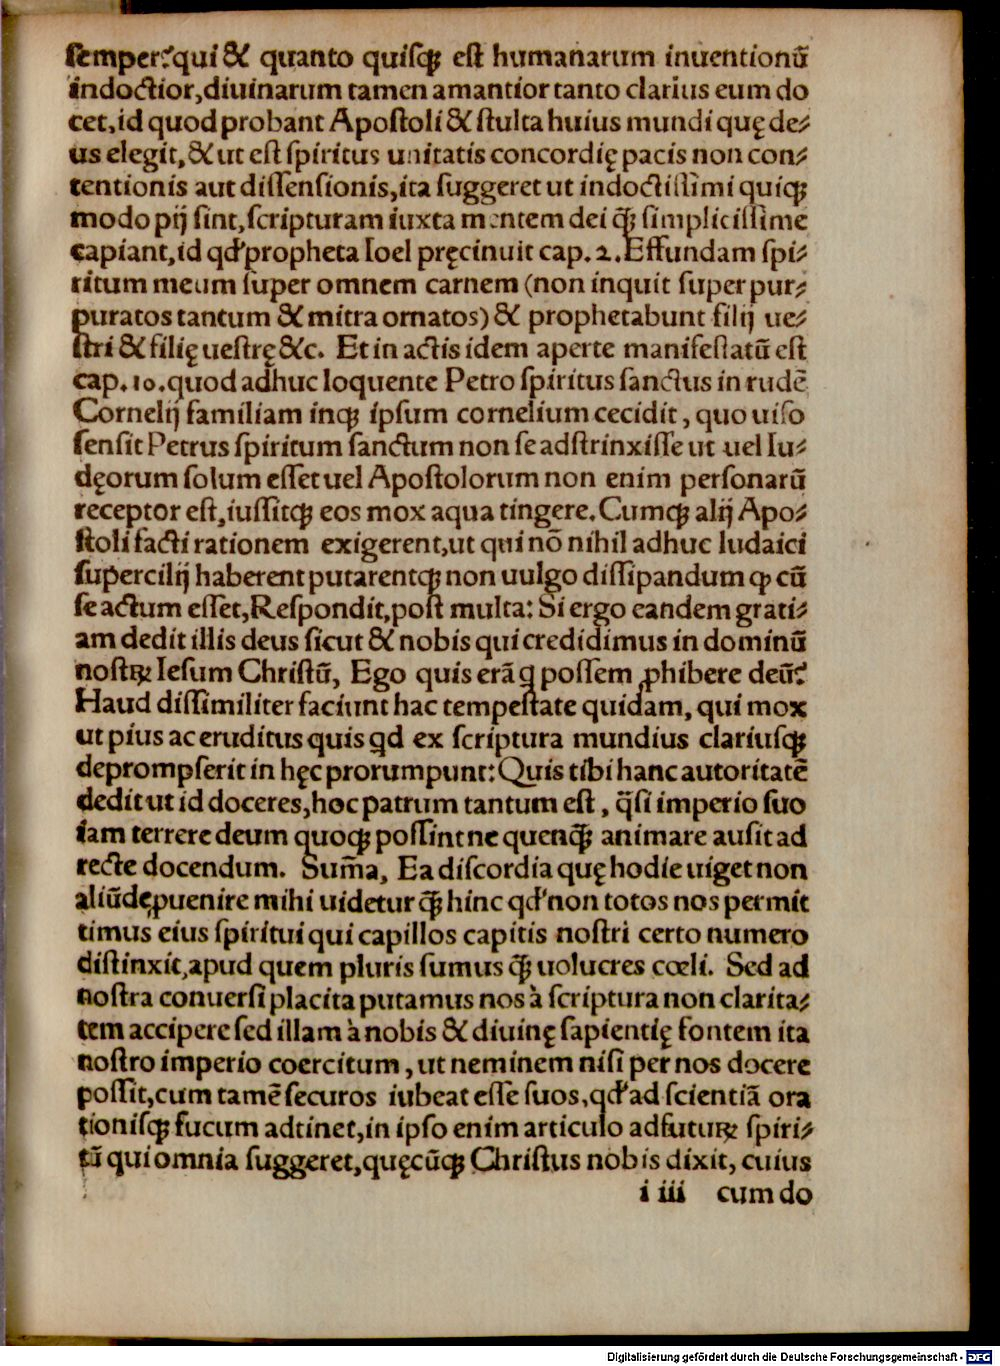 semper? qui & quanto quisqꝫ est humanarum inuentionū
indoctior, diuinarum tamen amantior tanto clarius eum do
cet, id quod probant Apostoli & stulta huius mundi quę de⸗
us elegit, & ut est spiritus unitatis concordię pacis non con⸗
tentionis aut dissensionis, ita suggeret ut indoctissimi quiqꝫ
modo pij sint, scripturam iuxta mentem dei qᷓꝫ simplicissime
capiant, id qđ propheta Ioel pręcinuit cap. 2. Effundam spi⸗
ritum meum super omnem carnem (non inquit super pur⸗
puratos tantum & mitra ornatos) & prophetabunt filij ue⸗
stri & filię uestrę &c. Et in actis idem aperte manifestatū est
cap. 10. quod adhuc loquente Petro spiritus sanctus in rudē
Cornelij familiam inqꝫ ipsum cornelium cecidit, quo uiso
sensit Petrus spiritum sanctum non se adstrinxisse ut uel Iu⸗
dęorum solum esset uel Apostolorum non enim personarū
receptor est, iussitqꝫ eos mox aqua tingere. Cumqꝫ alij Apo⸗
stoli facti rationem exigerent, ut qui nō nihil adhuc Iudaici
supercilij haberent putarentqꝫ non uulgo dissipandum ꝙ cū
se actum esset, Respondit, post multa: Si ergo eandem grati⸗
am dedit illis deus sicut & nobis qui credidimus in dominū
nostrꝝ Iesum Christū, Ego quis erā q possem ꝓhibere deū?
Haud dissimiliter faciunt hac tempestate quidam, qui mox
ut pius ac eruditus quis qd ex scriptura mundius clariusqꝫ
deprompserit in hęc prorumpunt: Quis tibi hanc autoritatē
dedit ut id doceres, hoc patrum tantum est, qᷓsi imperio suo
iam terrere deum quoqꝫ possint ne quenqᷓꝫ animare ausit ad
recte docendum. Sum̄a, Ea discordia quę hodie uiget non
aliūde ꝓuenire mihi uidetur qᷓꝫ hinc qđ non totos nos permit
timus eius spiritui qui capillos capitis nostri certo numero
distinxit, apud quem pluris sumus qᷓꝫ uolucres cœli. Sed ad
nostra conuersi placita putamus nos à scriptura non clarita⸗
tem accipere sed illam à nobis & diuinę sapientię fontem ita
nostro imperio coercitum, ut neminem nisi per nos docere
possit, cum tamē securos iubeat esse suos, qđ ad scientiā ora
tionisqꝫ fucum adtinet, in ipso enim articulo adfuturꝝ spiri⸗
tū qui omnia suggeret, quęcūqꝫ Christus nobis dixit, cuius
i iii cum do
Digitalisierung gefördert durch die Deutsche Forschungsgemeinschaft - DFG